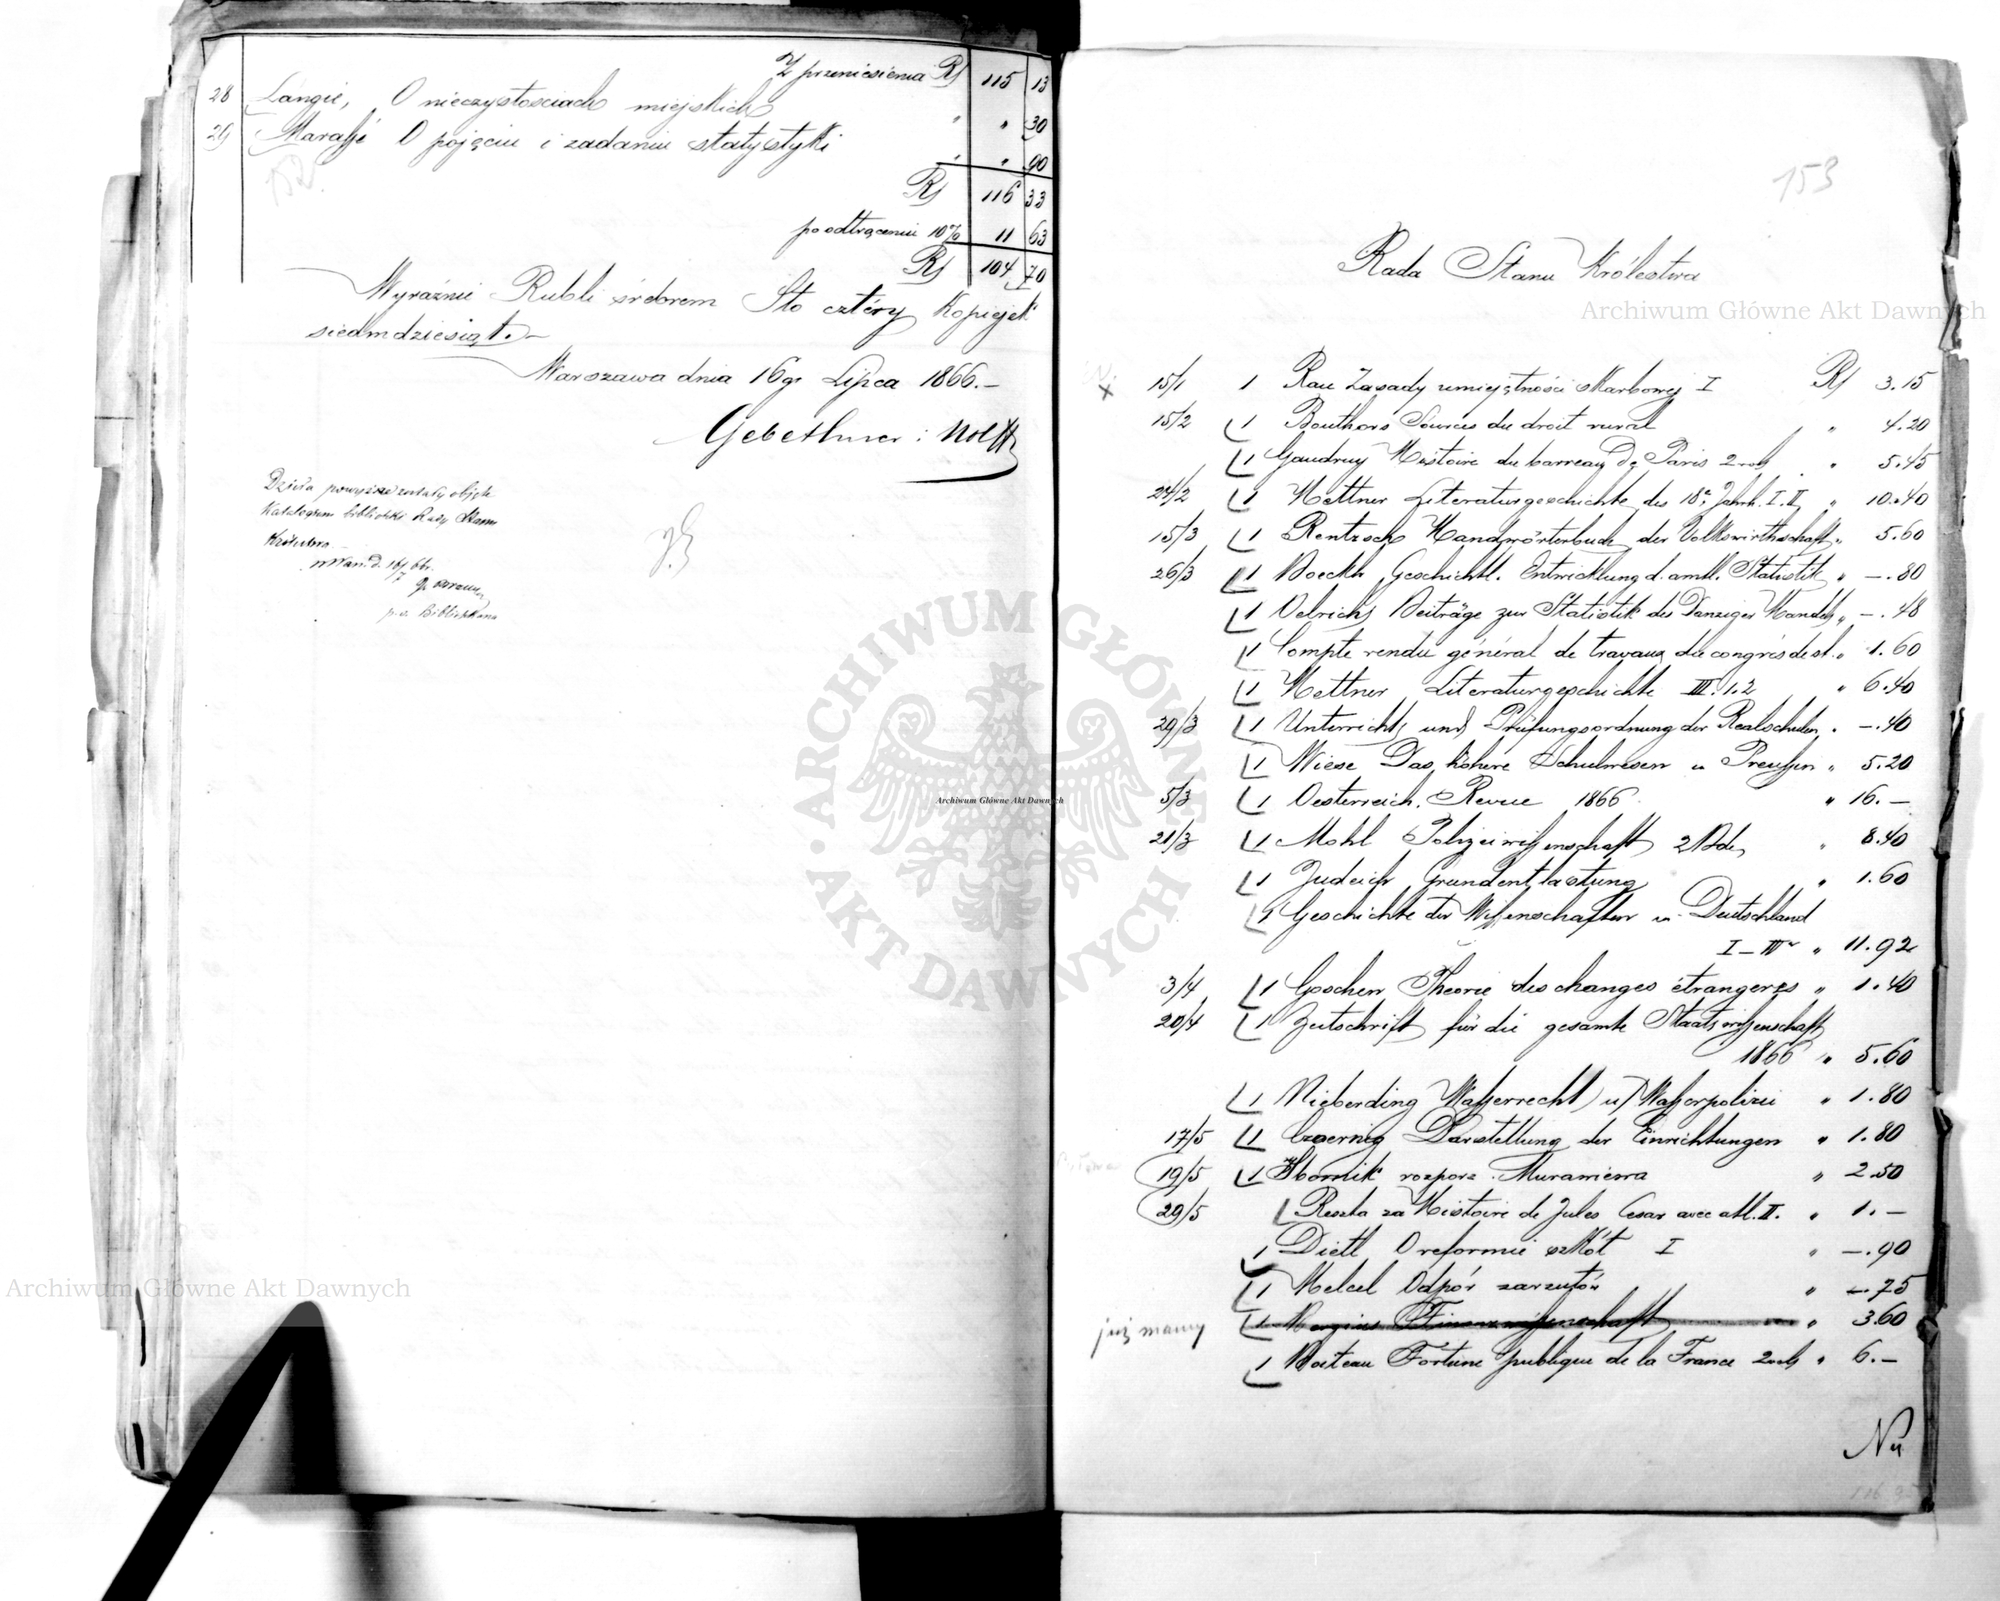 Z przeniesienia Rs 115 13
28 Langie, O nieczystościach miejskich " " 30
29 Marassé O pojęciu i zadaniu statystyki " " 90
Rs 116 33
po odtrąceniu 10% 11 63
Rs 104 70
Wyraźnie Rubli srebrem Sto cztéry Kopiejek
siedmdziesiąt.–
Warszawa dnia 16go Lipca 1866.–
Gebethner i Wolff
Dzieła powyższe zostały objęte
Katalogiem biblioteki Rady Stanu
Królestwa
w War. d. 16/7 66 r.
p.o. Bibliotekarza
153
Rada Stanu Królestwa
x 15/1 1 Rau Zasady umiejętności skarbowej I Rs 3.15
15/2 1 Bouthors Sources du droit rural " 4.20
1 Gaudry Histoire du barreau de Paris 2 vols " 5.45
24/2 1 Hettner Literaturgeschichte des 18n Jahrh. I. II " 10.40
15/3 1 Rentzsch Handwörterbuch der Volkswirthschaft " 5.60
26/3 1 Boeckh Geschichtl. Entwicklung d. amtl. Statistik " –.80
1 Oelrichs Beiträge zur Statistik des Danziger Handels " –.48
1 Compte rendu général de travaux du congrès de st. " 1.60
1 Hettner Literaturgeschichte III. 1. 2 " 6.40
29/3 1 Unterrichts und Prüfungsordnung der Realschulen " –.40
1 Wiese Das höhere Schulwesen in Preußen " 5.20
5/3 1 Oesterreich. Revue 1866 " 16.–
21/3 1 Mohl Polizeiwissenschaft 2 Bde " 8.40
1 Judeich Grundentlastung " 1.60
1 Geschichte der Wissenschaften in Deutschland
I–III " 11.92
3/4 1 Goschen Theorie des changes étrangers " 1.40
20/4 1 Zeitschrift für die gesamte Staatswissenschaft
1866 " 5.60
1 Nieberding Wasserrecht u/ Wasserpolizei " 1.80
17/5 1 Czoernig Darstellung der Einrichtungen " 1.80
19/5 1 Zbornik rozporz. Murawiewa " 2.50
29/5 Reszta za Histoire de Jules Cesar avec atl. II. " 1.–
1 Dietl O reformie szkół I " –.90
1 Helcel Odpór zarzutów " –.75
już mamy 1 Bergius Finanzwissenschaft " 3.60
1 Boiteau Fortune publique de la France 2 vols " 6.–
Archiwum Główne Akt Dawnych
Archiwum Główne Akt Dawnych
Archiwum Główne Akt Dawnych
ARCHIWUM GŁÓWNE AKT DAWNYCH